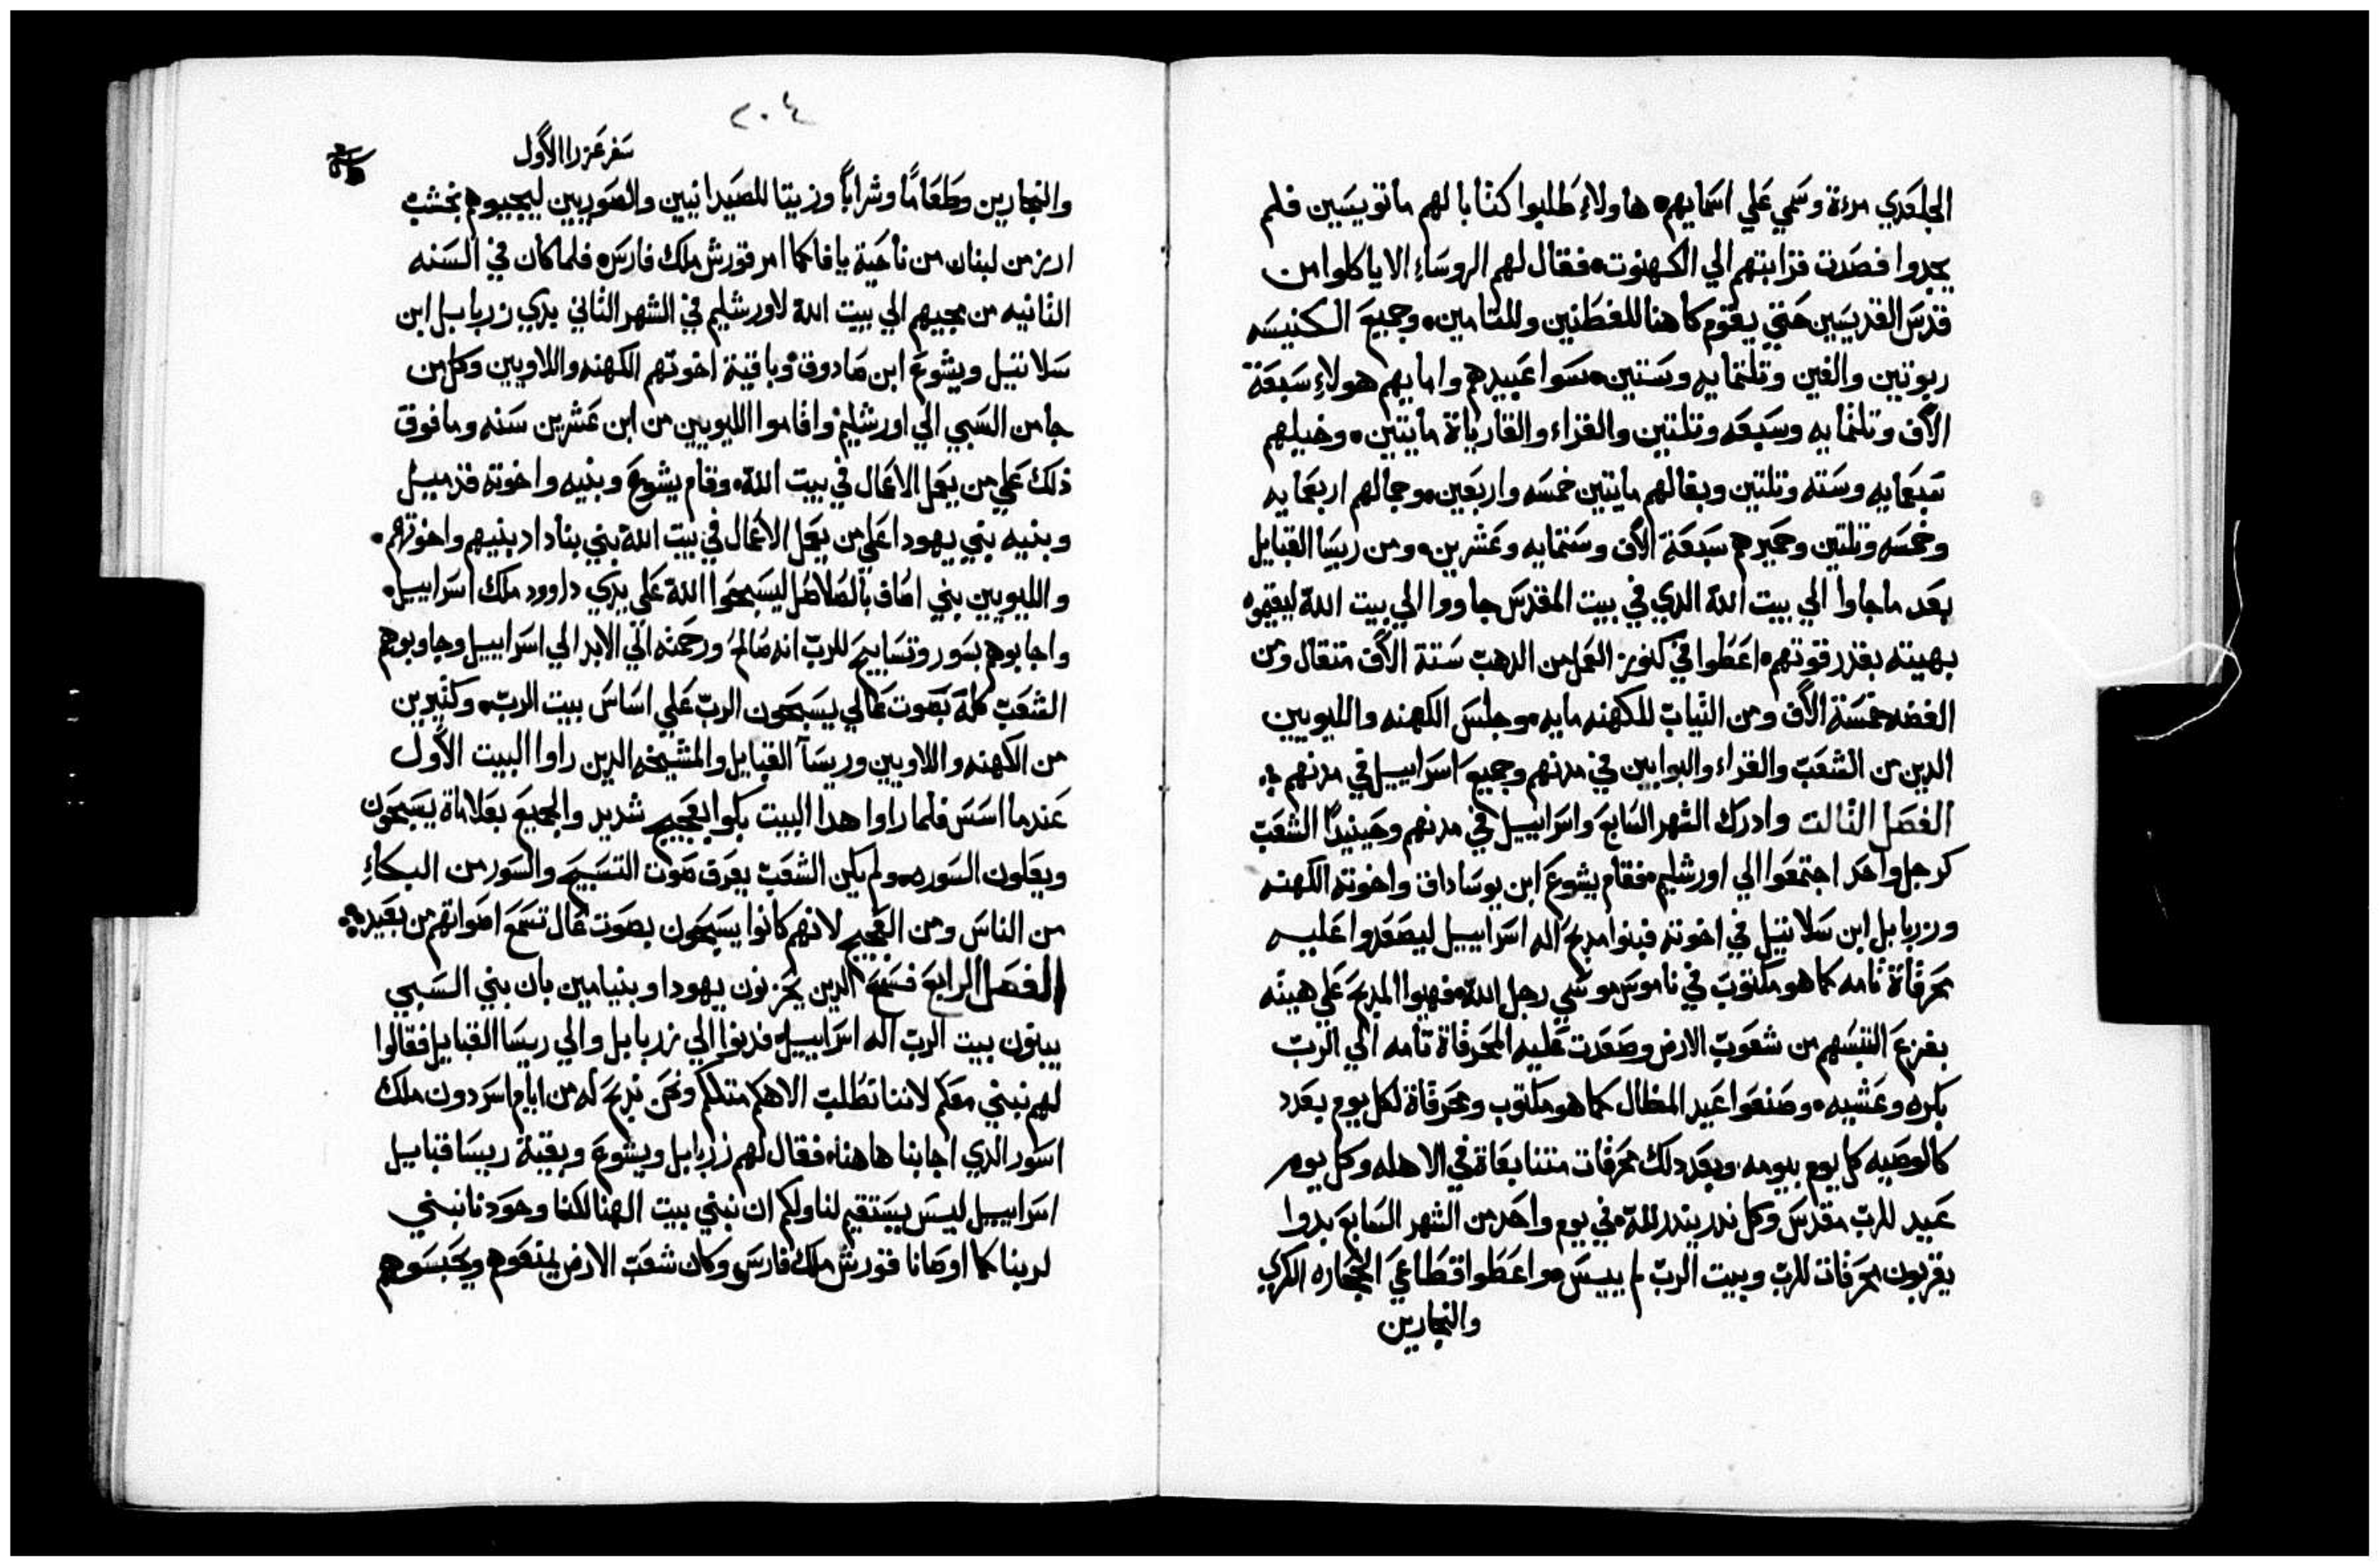 الجلعدي مرءة وسمي علي اسمايهم هاولاء طلبوا كتابا لهم مانويسيين فلم
يجدوا فصدت قرابتهم الي الكهنوت فقال لهم الروساء الا ياكلوا من
قدس القديسين حتي يقوم كاهنا للغطنين وللتامين وجميع الكنيسه
ربوتين والفين وتلتمايه وستين سوا عبيدهم وامايهم هولاء سبعة
الاف وتلتمايه وسبعه وتلتين والقراء والقارياة مايتين وخيلهم
سبعمايه وسته وتلتين وبغالهم مايتين خمسه واربعين وجمالهم اربعمايه
وخمسه وتلتين وحميرهم سبعة الاف وستمايه وعشرين ومن ريسا القبايل
بعد ماجاوا الي بيت الله الدي في بيت المقدس جاووا الي بيت الله ليقيموه
بهيته بقدر قوتهم اعطوا في كنوز العمل من الدهب ستة الاف متقال ومن
الفضه خمسة الاف ومن التياب للكهنه مايه وجلس الكهنه والليويين
الدين من الشعب والقراء والبوابين في مدنهم وجميع اسراييل في مدنهم
الفصل التالت وادرك الشهر السابع واسراييل في مدنهم وحينيدا الشعب
كرجل واحد اجتمعوا الي اورشليم فقام يشوع ابن يوساداق واخوته الكهنه
وزربابل ابن سلاتيل في اخوته فبنوا مدبح اله اسراييل ليصعدوا عليه
محرقاة تامه كما هو مكتوب في ناموس موسي رجل الله فهيوا المدبح علي هيته
بفزع انفسهم من شعوب الارض وصعدت عليه المحرقاة تامه الي الرب
بكره وعشيه وصنعوا عيد المظال كما هو مكتوب ومحرقاة لكل يوم بعدد
كالوصيه كل يوم بيومه وبعد دلك محرقات متتابعاة في الاهله وكل يوم
عيد للرب مقدس وكل ندر يندر لله في يوم واحد من الشهر السابع بدوا
يقربون محرقات للرب وبيت الرب لم ييسس واعطوا قطاعي الحجاره الكري
والنجارين
٢٠٤
سفر عزرا الاول
والنجارين وطعاما وشرابا وزيتا للصيدانيين والصوريين ليجيبوهم بخشب
ارز من لبنان من ناحية يافا كما امر قورش ملك فارس فلما كان في السنه
التانيه من مجيهم الي بيت الله لاورشليم في الشهر التاني بدي زربابل ابن
سلاتيل ويشوع ابن صادوق وباقية اخوتهم الكهنه واللاويين وكل من
جا من السبي الي اورشليم واقاموا الليويين من ابن عشرين سنه ومافوق
دلك علي من يعمل الاعمال في بيت الله وقام يشوع وبنيه واخوته قدمييل
وبنيه بني يهودا علي من يعمل الاعمال في بيت الله بني يناداد بنيهم واخوتهم
والليويين بني اصاف بالصلاصل ليسبحوا الله علي يدي داوود ملك اسراييل
واجابوهم بسور وتسابيح للرب انه صالح ورحمته الي الابد الي اسراييل وجاوبوهم
الشعب كله بصوت عالي يسبحون الرب علي اساس بيت الرب وكتيرين
من الكهنه واللاويين وريسا القبايل والمشيخه الدين راوا البيت الاول
عندما اسس فلما راوا هدا البيت بكوا بعجيج شديد والجميع بعلاماة يسبحون
ويعلون السوره ولم يكن الشعب يعرف صوت التسبيح والسور من البكاء
من الناس ومن العجيج لانهم كانوا يسبحون بصوت عال تسمع اصواتهم من بعيد
الفصل الرابع فسمع الدين يحزنون يهودا وبنيامين بان بني السبي
يبنون بيت الرب اله اسراييل فدنوا الي زربابل والي ريسا القبايل فقالوا
لهم نبني معكم لاننا نطلب الاهكم متلكم ونحن ندبح له من ايام اسردون ملك
اسور الدي اجابنا هاهنا فقال لهم زربابل ويشوع وبقية ريسا قبايل
اسراييل ليس يستقيم لنا ولكم ان نبني بيت الهنا لكنا وحودنا نبني
لربنا كما اوصانا قورش ملك فارس وكان شعب الارض يمنعوهم ويحبسوهم